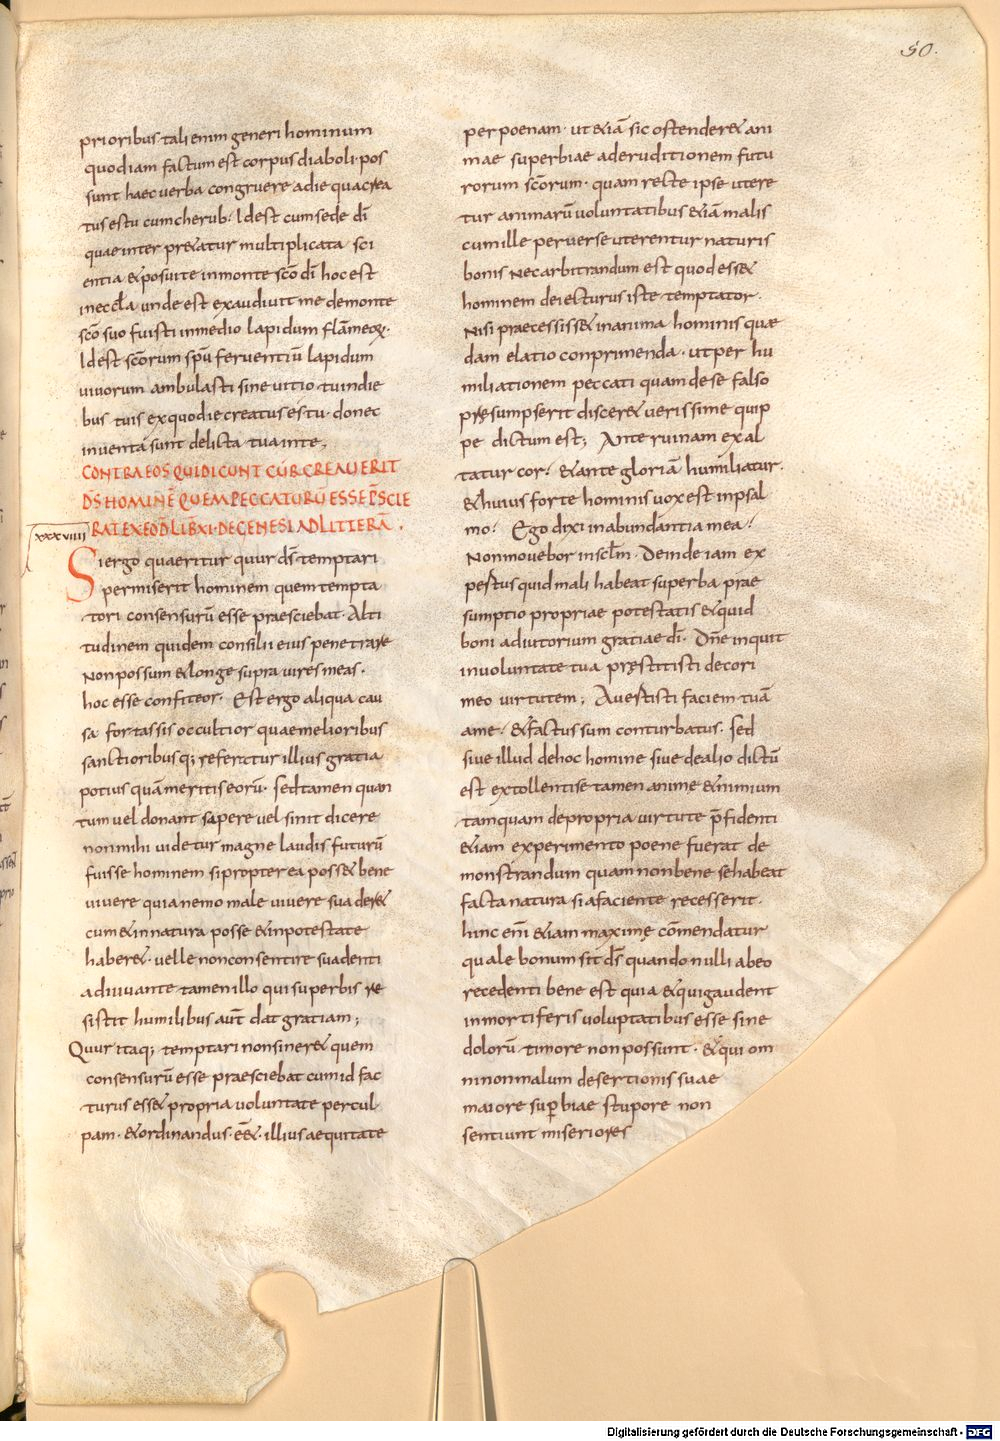 50.
prioribus tali enim generi hominum
quod iam factum est corpus diaboli· pos
sunt haec uerba congruere a die qua crea
tus es tu cum cherub· Idest cum sede dī
quae inter praetatur multiplicata sci
entia & posui te in monte scō dī hoc est
in eccła unde est exaudiuit me de monte
scō suo fuisti in medio lapidum flāmeoꝝ·
Idest scōrum spū feruentiū lapidum
uiuorum ambulasti sine uitio tu in die
bus tuis ex quo die creatus es tu· donec
inuenta sunt delicta tua in te;
CONTRA EOS QUI DICUNT CUR CREAUERIT
DS̄ HOMINĒ QUEM PECCATURŪ ESSE P̄SCIE
RAT EX EOD̄ LIB̄ XI· DE GENESI AD LITTERĀ·
xxxviiii
Si ergo quaeritur quur ds̄ temptari
permiserit hominem quem tempta
tori consensurū esse praesciebat· Alti
tudinem quidem consilii eius penetrare
Non possum & longe supra uires meas·
hoc esse confiteor· Est ergo aliqua cau
sa fortassis occultior quae melioribus
sanctioribusq; referatur illius gratia
potius quā meritis eorū· sed tamen quan
tum uel donant sapere uel sinit dicere
non mihi uidetur magne laudis futurū
fuisse hominem si propterea poss& bene
uiuere quia nemo male uiuere suader&
cum & in natura posse & in potestate
haber&· uelle non consentire suadenti
adiuuante tamen illo qui superbis re
sistit humilibus aut̄ dat gratiam;
Quur itaq; temptari non siner& quem
consensurū esse praesciebat cum id fac
turus ess& propria uoluntate per cul
pam· & ordinandus ēēt· illius aequitate
per poenam· ut &iā sic ostender& ani
mae superbiae ad eruditionem futu
rorum scōrum· quam recte ipse utere
tur animarū uoluntatibus &iā malis
cum ille peruerse uterentur naturis
bonis Nec arbitrandum est quod ess&
hominem deiecturus iste temptator·
Nisi praecessiss& in anima hominis quę
dam elatio conprimenda· ut per hu
miliationem peccati quam de se falso
pręsumpserit discer& uerissime quip
pe dictum est; Ante ruinam exal
tatur cor· & ante gloriā humiliatur·
& huius forte hominis uox est in psal
mo· Ego dixi in abundantia mea·
Non mouebor in scłm· Deinde iam ex
pertus quid mali habeat superba prae
sumptio propriae potestatis & quid
boni adiutorium gratiae dī· Dn̄e inquit
in uoluntate tua pręstitisti decori
meo uirtutem; Auertisti faciem tuā
a me· & factus sum conturbatus· sed
siue illud de hoc homine siue de alio dictū
est extollentis e tamen animę & nimium
tamquam de propria uirtute p̄fidenti
&iam experimento poene fuerat de
monstrandum quam non bene se habeat
facta natura si a faciente recesserit·
hinc enī &iam maximę cōmendatur
quale bonum sit ds̄ quando nulli ab eo
recedenti bene est quia & qui gaudent
in mortiferis uoluptatibus esse sine
dolorū timore non possunt· & qui om
nino malum desertionis suae
maiore sup̄biae stupore non
sentiunt miseriores
Digitalisierung gefördert durch die Deutsche Forschungsgemeinschaft - DFG